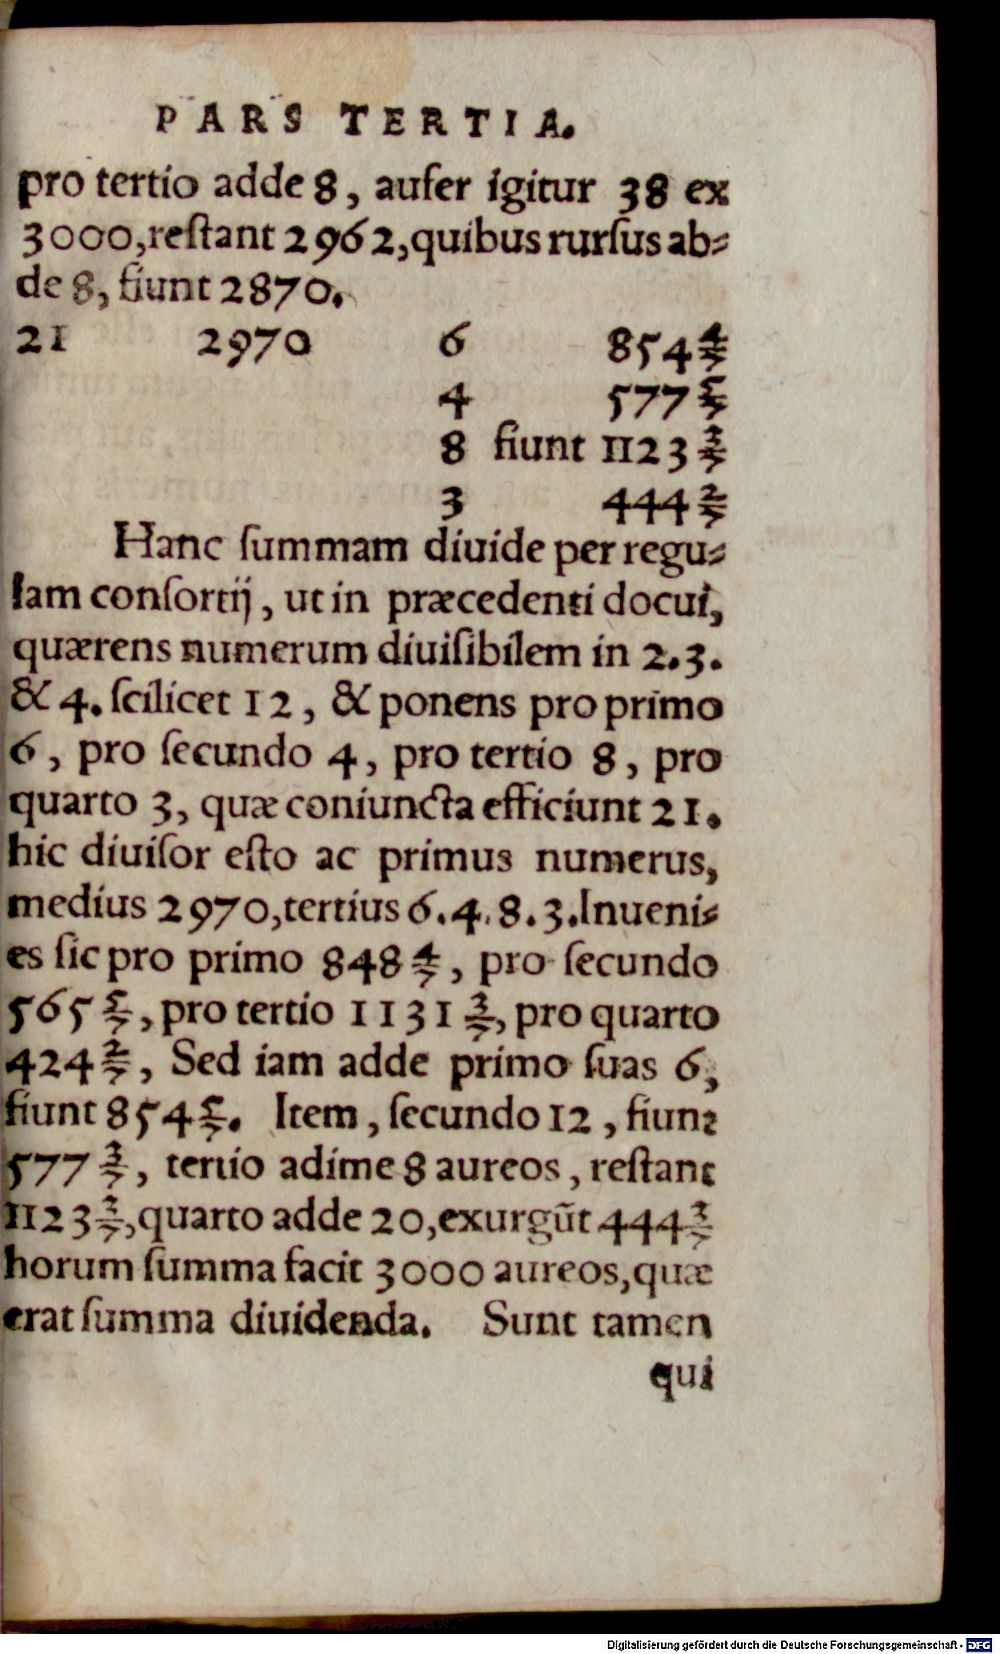 PARS TERTIA.
pro tertio adde 8, aufer igitur 38 ex
3000,reſtant 2962,quibus rurſus ab⸗
de 8, fiunt 2870.
21 2970 6 854 4/7
4 577 5/7
8 fiunt 1123 3/7
3 444 2/7
Hanc ſummam diuide per regu⸗
lam conſortij, ut in præcedenti docui,
quærens numerum diuiſibilem in 2.3.
& 4. ſcilicet 12, & ponens pro primo
6, pro ſecundo 4, pro tertio 8, pro
quarto 3, quæ coniuncta efficiunt 21.
hic diuiſor eſto ac primus numerus,
medius 2970,tertius 6.4.8.3.Inueni⸗
es ſic pro primo 848 4/7, pro ſecundo
565 5/7, pro tertio 1131 3/7, pro quarto
424 2/7, Sed iam adde primo ſuas 6,
fiunt 854 5/7. Item, ſecundo 12, fiunt
577 3/7, tertio adime 8 aureos, reſtant
1123 3/7,quarto adde 20,exurgũt 444 3/7
horum ſumma facit 3000 aureos,quæ
erat ſumma diuidenda. Sunt tamen
qui
Digitalisierung gefördert durch die Deutsche Forschungsgemeinschaft - DFG